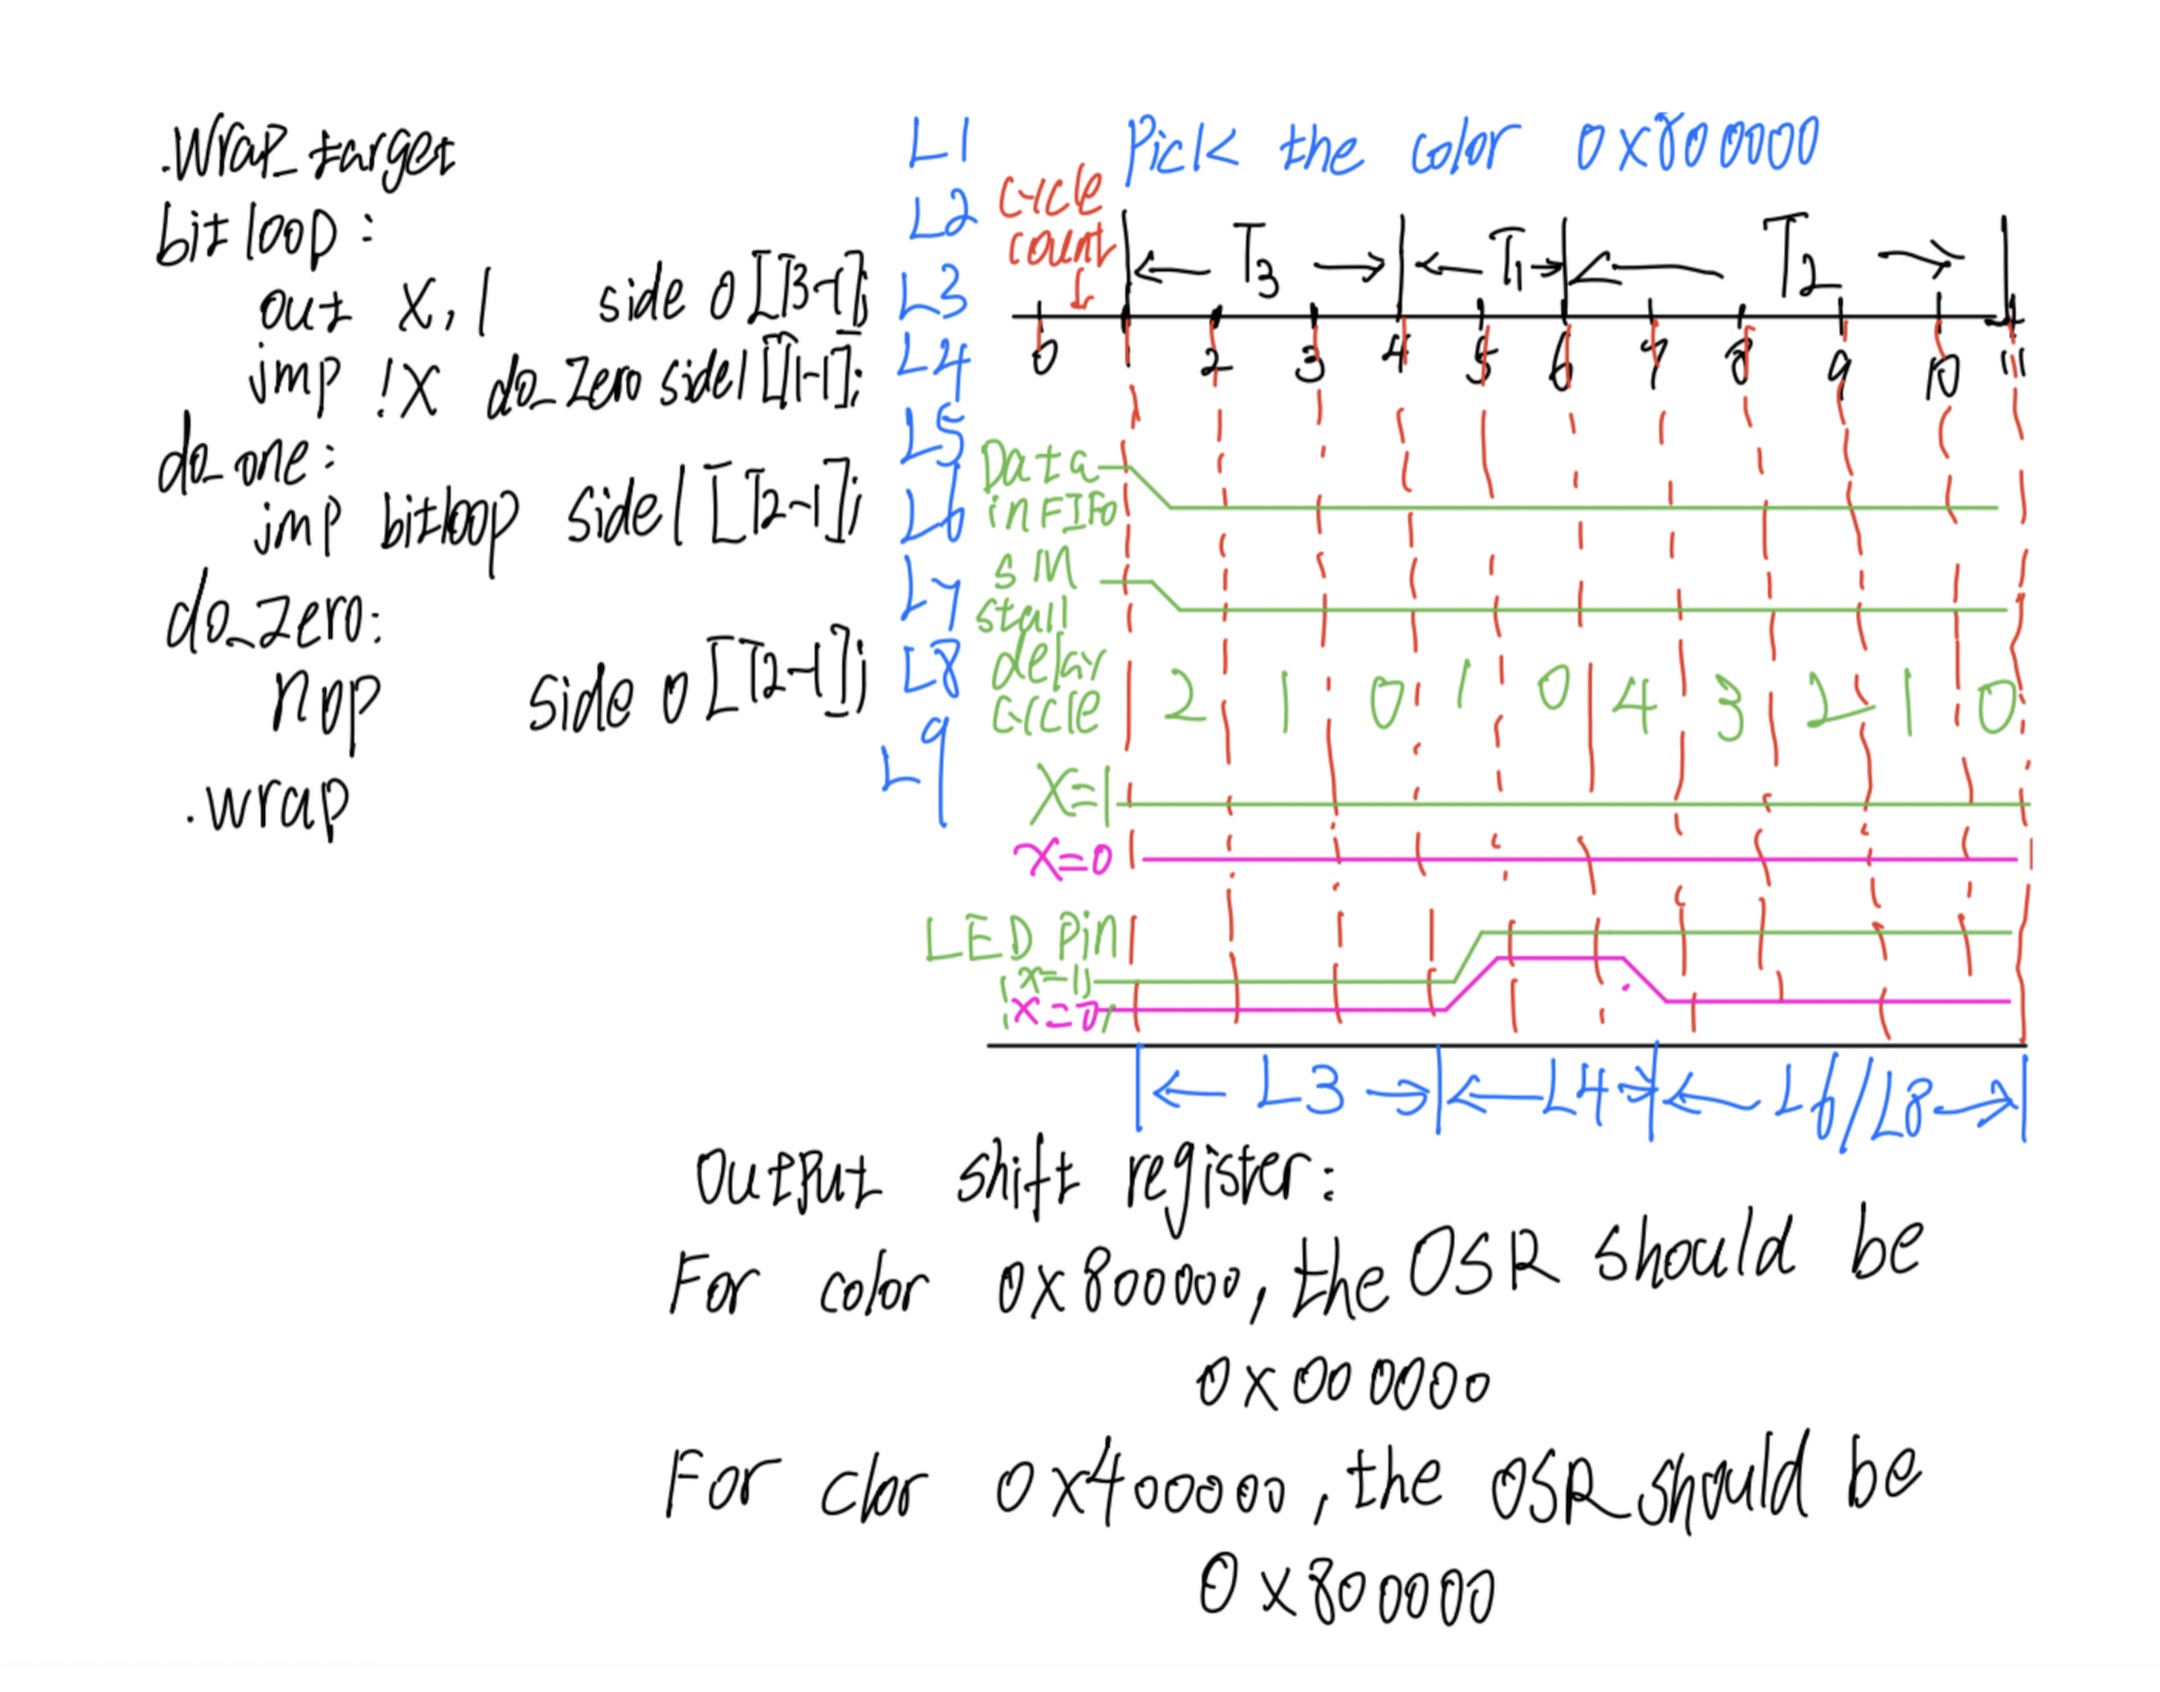 .wrap_target L1
bitloop: L2
out x, 1 side 0 [T3-1]; L3
jmp !x do_zero side 1 [T1-1]; L4
do_one: L5
jmp bitloop side 1 [T2-1]; L6
do_zero: L7
nop side 0 [T2-1]; L8
.wrap L9
Pick the color 0x800000
cycle
count
T3 T1 T2
0 1 2 3 4 5 6 7 8 9 10 11
Data
in FIFO
SM
stall
delay
cycle
2 1 0 1 0 4 3 2 1 0
X=1
X=0
LED Pin
(x=1)
(x=0)
L3 L4 L6/L8
Output shift register:
For color 0x800000, the OSR should be
0x000000
For clor 0x400000, the OSR should be
0x800000